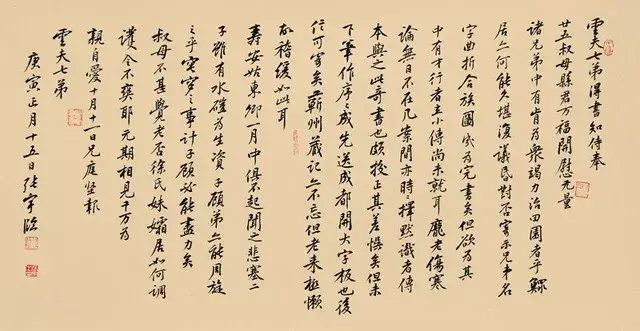 雲夫七弟得書知待奉
廿五叔母縣君万福開慰无量
諸兄弟中有肯為衆竭力治田園者乎鰥
居亦何能久堪復議昏對否寄示兄弟名
字曲折合族圖成為完書矣但欲為其
中有才行者立小傳尚未就耳龐老傷寒
論無日不在几案間亦時〻擇默識者傳
本與之此奇書也頗校正其差悮矣但未
下筆作序〻成先送成都開大字板也後
信可寄矣蘄州藏記亦不忘但老来極懶
故稽緩如此耳
壽安姑東卿一月中俱不起聞之悲塞二
子雖有水磑為生資子顧弟亦能周旋
之乎窀穸之事計子顧必能盡力矣
叔母不甚覺老否徐氏妹孀居如何調
護令不爽耶元期相見千万為
親自愛十月十一日兄庭堅報
雲夫七弟
庚寅正月十五日張宇臨